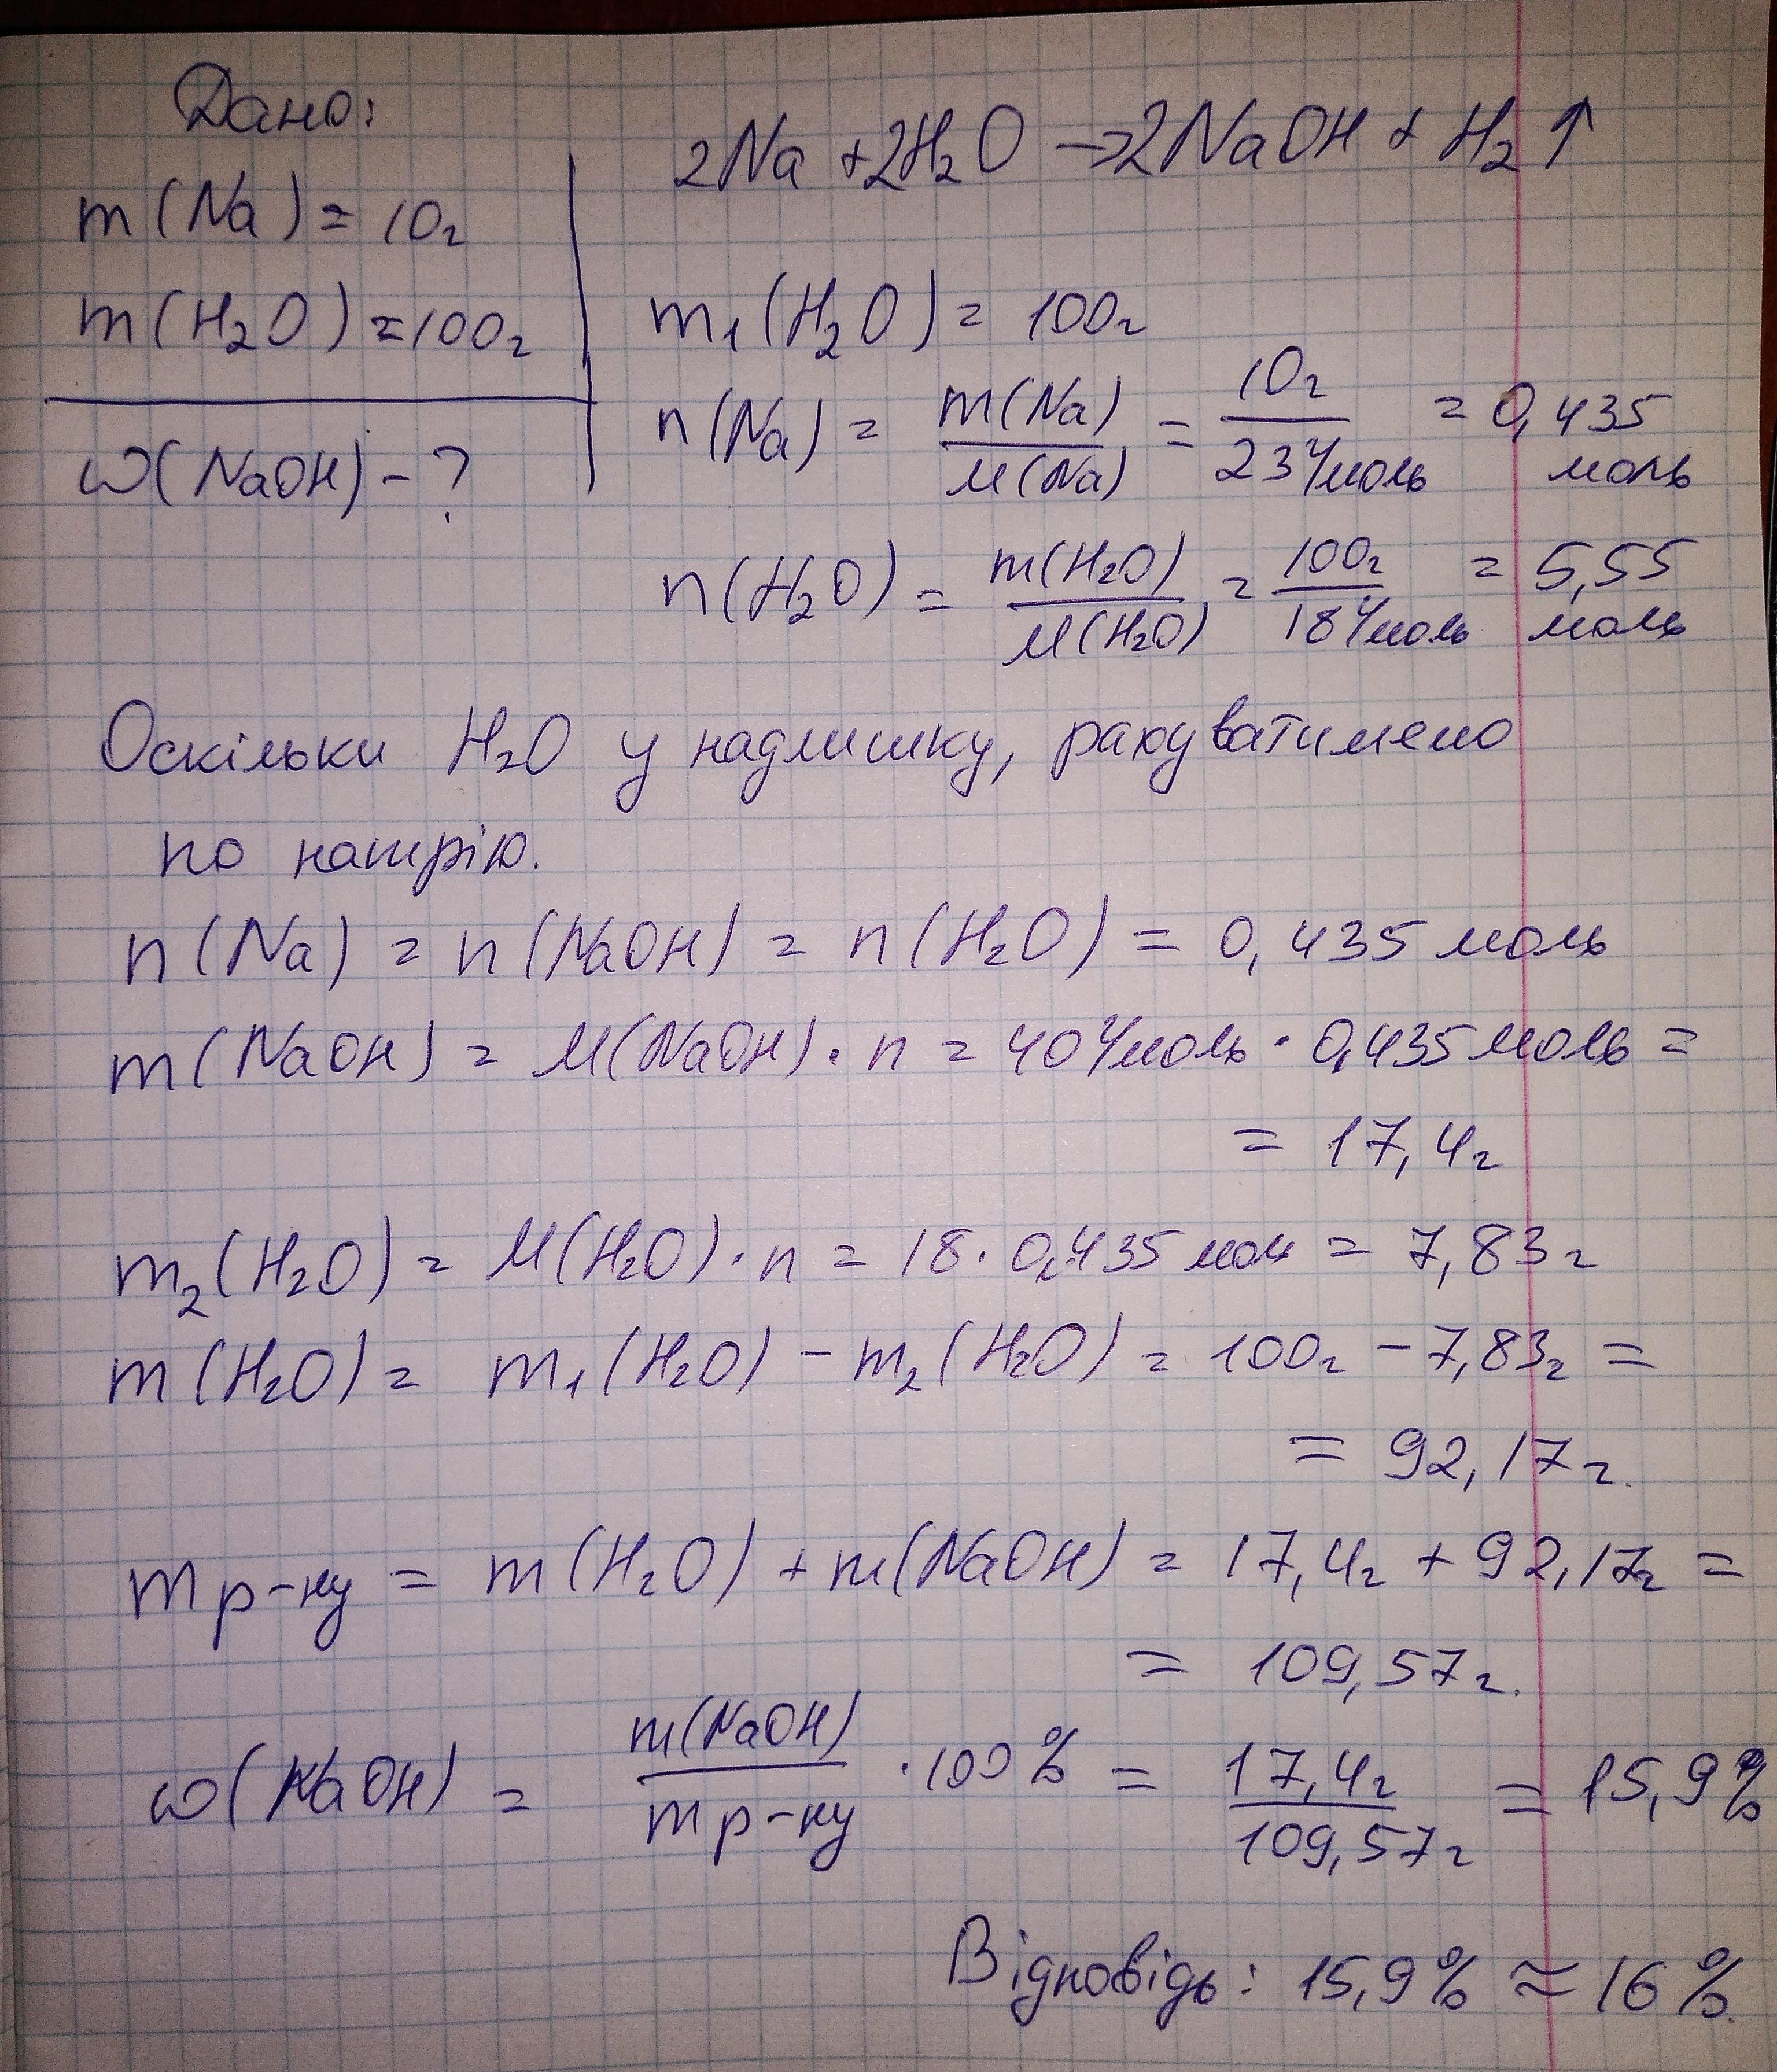 Дано:
2Na + 2H₂O → 2NaOH + H₂↑
m(Na) = 10г
m(H₂O) = 100г
ω(NaOH) - ?
m₁(H₂O) = 100г
n(Na) = m(Na)/M(Na) = 10г/23 г/моль = 0,435 моль
n(H₂O) = m(H₂O)/M(H₂O) = 100г/18 г/моль = 5,55 моль
Оскільки H₂O у надлишку, рахуватимемо
по натрію.
n(Na) = n(NaOH) = n(H₂O) = 0,435 моль
m(NaOH) = M(NaOH) · n = 40 г/моль · 0,435 моль =
= 17,4г
m₂(H₂O) = M(H₂O) · n = 18 · 0,435 моль = 7,83г
m(H₂O) = m₁(H₂O) - m₂(H₂O) = 100г - 7,83г =
= 92,17г.
m р-ну = m(H₂O) + m(NaOH) = 17,4г + 92,17г =
= 109,57г.
ω(NaOH) = m(NaOH)/m р-ну · 100% = 17,4г/109,57г = 15,9%
Відповідь: 15,9% ≈ 16%.